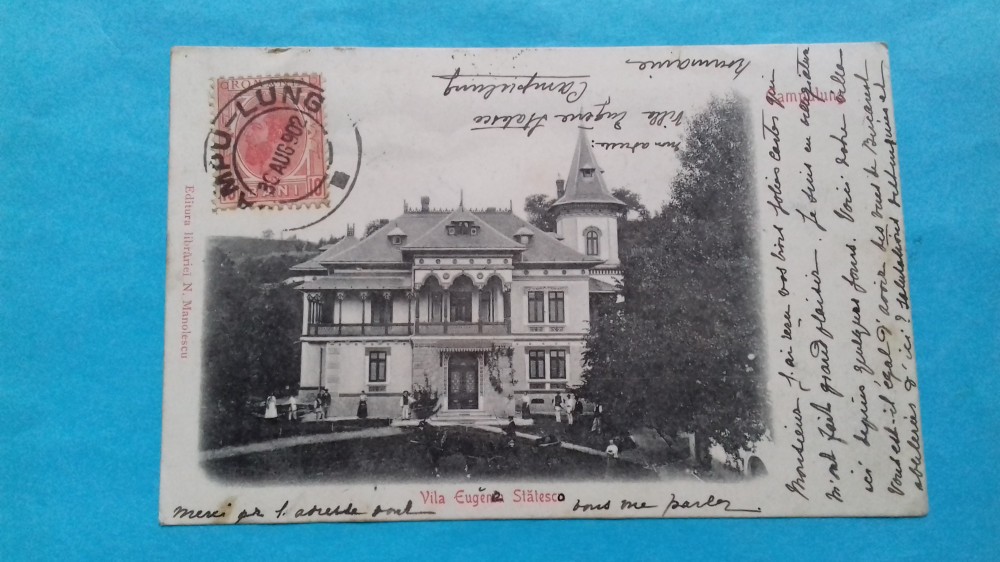 ROMANIA
10 BANI 10
MPU-LUNG
30 AUG 902
Editura librăriei N. Manolescu
Roumanie
mon adresse:
Villa Eugènie Statesco
Campulung
Câmpulung
Monsieur J'ai reçu vos trois jolies cartes qui
m'ont fait grand plaisir. Je suis en villégiature
ici depuis quelques jours. Voici notre villa
Vous est-il égal d'avoir des vues de Bucarest
et d'ici? Salutations
Vila Eugénia Stătescu
Merci pr l'adresse dont
vous me parlez